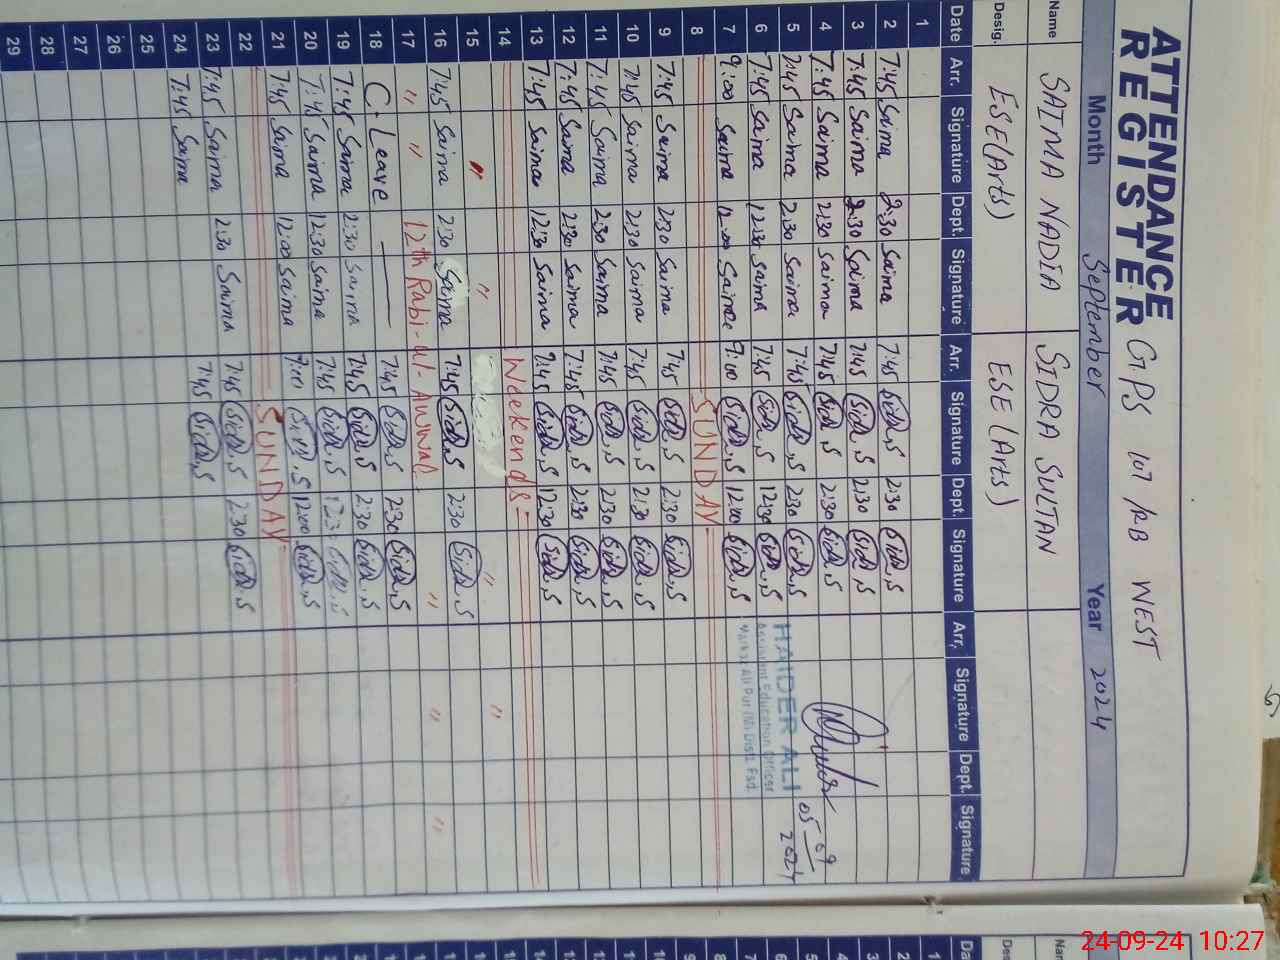 ATTENDANCE
REGISTER GPS 107 RB WEST
Month September Year 2024
Name SAIMA NADIA SIDRA SULTAN
Desig. ESE(Arts) ESE (Arts)
Date Arr. Signature Dept. Signature Arr. Signature Dept. Signature Arr. Signature Dept. Signature
1
2 7:45 Saima 2:30 Saima 7:45 Sidra, S 2:30 Sidra, S
3 7:45 Saima 2:30 Saima 7:45 Sidra, S 2:30 Sidra, S
4 7:45 Saima 2:30 Saima 7:45 Sidra, S 2:30 Sidra, S
5 7:45 Saima 2:30 Saima 7:45 Sidra, S 2:30 Sidra, S
05 09 2024
HAIDER ALI
Assistant Education Officer
Markaz Ali Pur (M) Distt. Fsd.
6 7:45 Saima 12:30 Saima 7:45 Sidra, S 12:30 Sidra, S
7 9:00 Saima 12:00 Saima 9:00 Sidra, S 12:00 Sidra, S
8 SUNDAY
9 7:45 Saima 2:30 Saima 7:45 Sidra, S 2:30 Sidra, S
10 7:45 Saima 2:30 Saima 7:45 Sidra, S 2:30 Sidra, S
11 7:45 Saima 2:30 Saima 7:45 Sidra, S 2:30 Sidra, S
12 7:45 Saima 2:30 Saima 7:45 Sidra, S 2:30 Sidra, S
13 7:45 Saima 12:30 Saima 7:45 Sidra, S 12:30 Sidra, S
14 Weekends
15 " " " "
16 7:45 Saima 2:30 Saima 7:45 Sidra, S 2:30 Sidra, S
17 " " 12th Rabi-ul-Awwal " " "
18 C. Leave 7:45 Sidra, S 2:30 Sidra, S
19 7:45 Saima 2:30 Saima 7:45 Sidra, S 2:30 Sidra, S
20 7:45 Saima 12:30 Saima 7:45 Sidra, S 12:30 Sidra, S
21 7:45 Saima 12:00 Saima 7:00 Sidra, S 12:00 Sidra, S
22 SUNDAY
23 7:45 Saima 2:30 Saima 7:45 Sidra, S 2:30 Sidra, S
24 7:45 Saima 7:45 Sidra, S
25
26
27
28
29
24-09-24 10:27